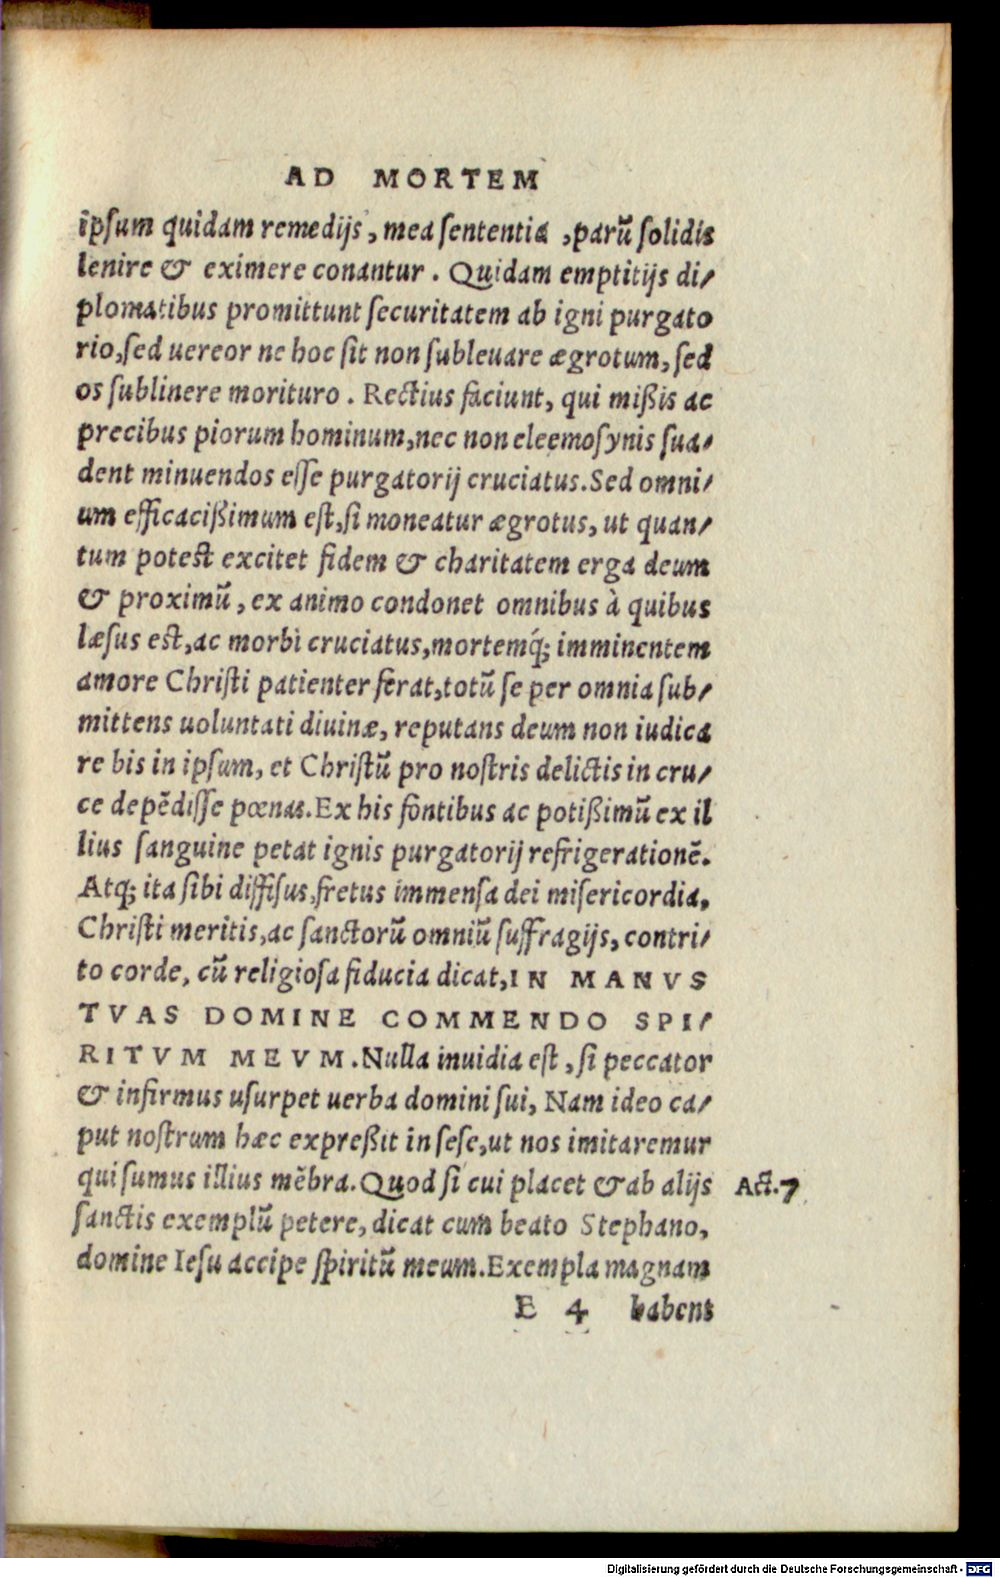 AD MORTEM
ipsum quidam remedijs, mea sententia, parũ solidis
lenire & eximere conantur. Quidam emptitijs di/
plomatibus promittunt securitatem ab igni purgato
rio, sed uereor ne hoc sit non subleuare ægrotum, sed
os sublinere morituro. Rectius faciunt, qui mißis ac
precibus piorum hominum, nec non eleemosynis sua/
dent minuendos esse purgatorij cruciatus. Sed omni/
um efficacißimum est, si moneatur ægrotus, ut quan/
tum potest excitet fidem & charitatem erga deum
& proximũ, ex animo condonet omnibus à quibus
læsus est, ac morbi cruciatus, mortemq́; imminentem
amore Christi patienter ferat, totũ se per omnia sub/
mittens uoluntati diuinæ, reputans deum non iudica
re bis in ipsum, et Christũ pro nostris delictis in cru/
ce depẽdisse pœnas. Ex his fontibus ac potißimũ ex il
lius sanguine petat ignis purgatorij refrigerationẽ.
Atq; ita sibi diffisus, fretus immensa dei misericordia,
Christi meritis, ac sanctorũ omniũ suffragijs, contri/
to corde, cũ religiosa fiducia dicat, IN MANVS
TVAS DOMINE COMMENDO SPI/
RITVM MEVM. Nulla inuidia est, si peccator
& infirmus usurpet uerba domini sui, Nam ideo ca/
put nostrum hæc expreßit in sese, ut nos imitaremur
qui sumus illius mẽbra. Quod si cui placet & ab alijs
Act. 7
sanctis exemplũ petere, dicat cum beato Stephano,
domine Iesu accipe spiritũ meum. Exempla magnam
E 4 habent
Digitalisierung gefördert durch die Deutsche Forschungsgemeinschaft - DFG